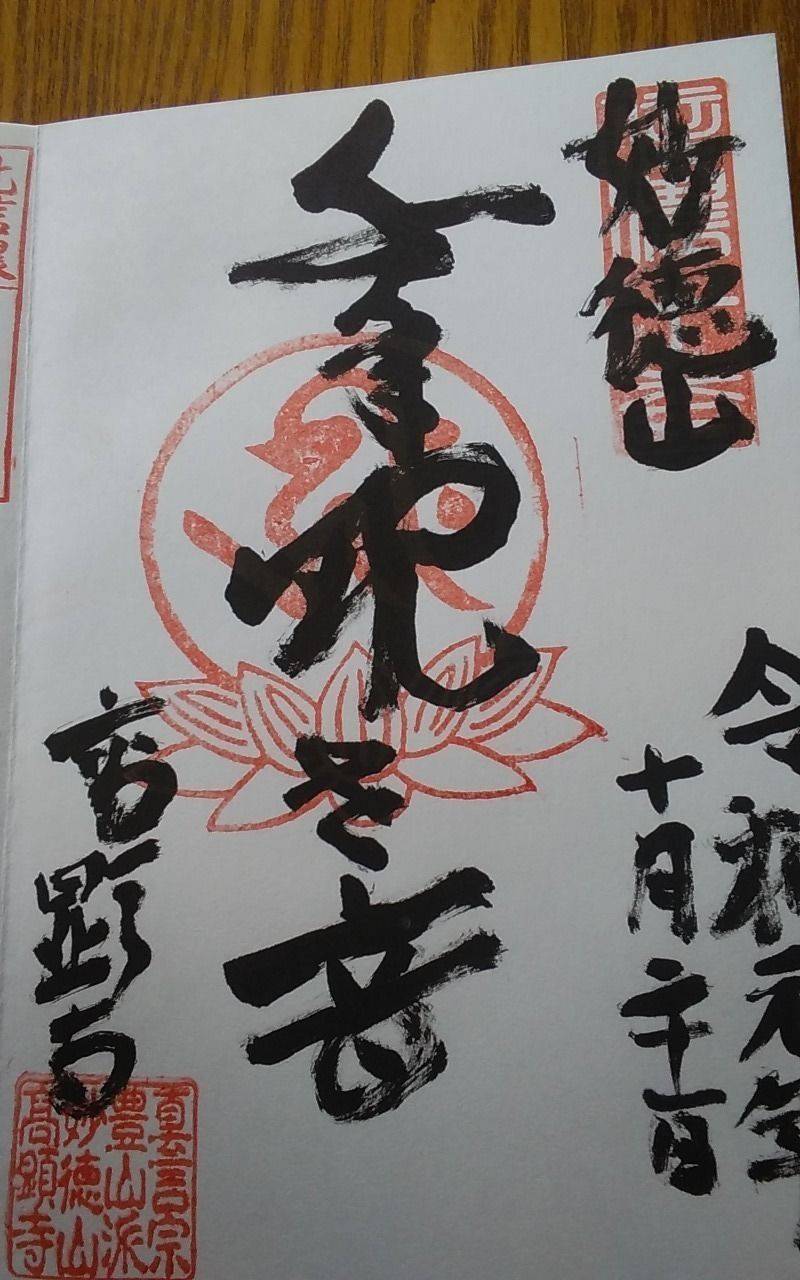 妙徳山
令和元年
十月二十一日
千手観世音
高顕寺
真言宗
豊山派
妙徳山
高顕寺